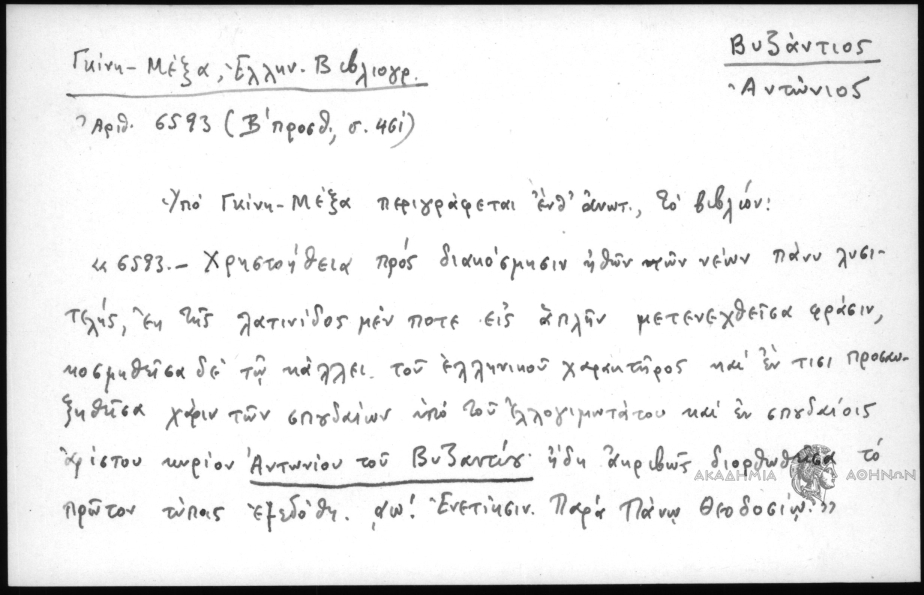 Γκίνη - Μέξα, Ἑλλην. Βιβλιογρ.
Βυζάντιος
Ἀντώνιος
Ἀριθ. 6593 (Β' προσθ., σ. 461)
Ὑπό Γκίνη - Μέξα περιγράφεται ἔνθ' ἀνωτ., τό βιβλίον:
«6593.- Χρηστοήθεια πρός διακόσμησιν ἠθῶν τῶν νέων πάνυ λυσι-
τελής, ἐκ τῆς λατινίδος μέν ποτε εἰς ἁπλῆν μετενεχθεῖσα φράσιν,
κοσμηθεῖσα δέ τῷ κάλλει τοῦ ἑλληνικοῦ χαρακτῆρος καί ἔν τισι προσαυ-
ξηθεῖσα χάριν τῶν σπουδαίων ὑπό τοῦ ἐλλογιμωτάτου καί ἐν σπουδαίοις
ἀρίστου κυρίου Ἀντωνίου τοῦ Βυζαντίου ἤδη ἀκριβῶς διορθωθεῖσα τό
πρῶτον τύποις ἐξεδόθη. ͵αω! Ἐνετίησιν. Παρά Πάνῳ Θεοδοσίῳ.»
ΑΚΑΔΗΜΙΑ ΑΘΗΝΩΝ